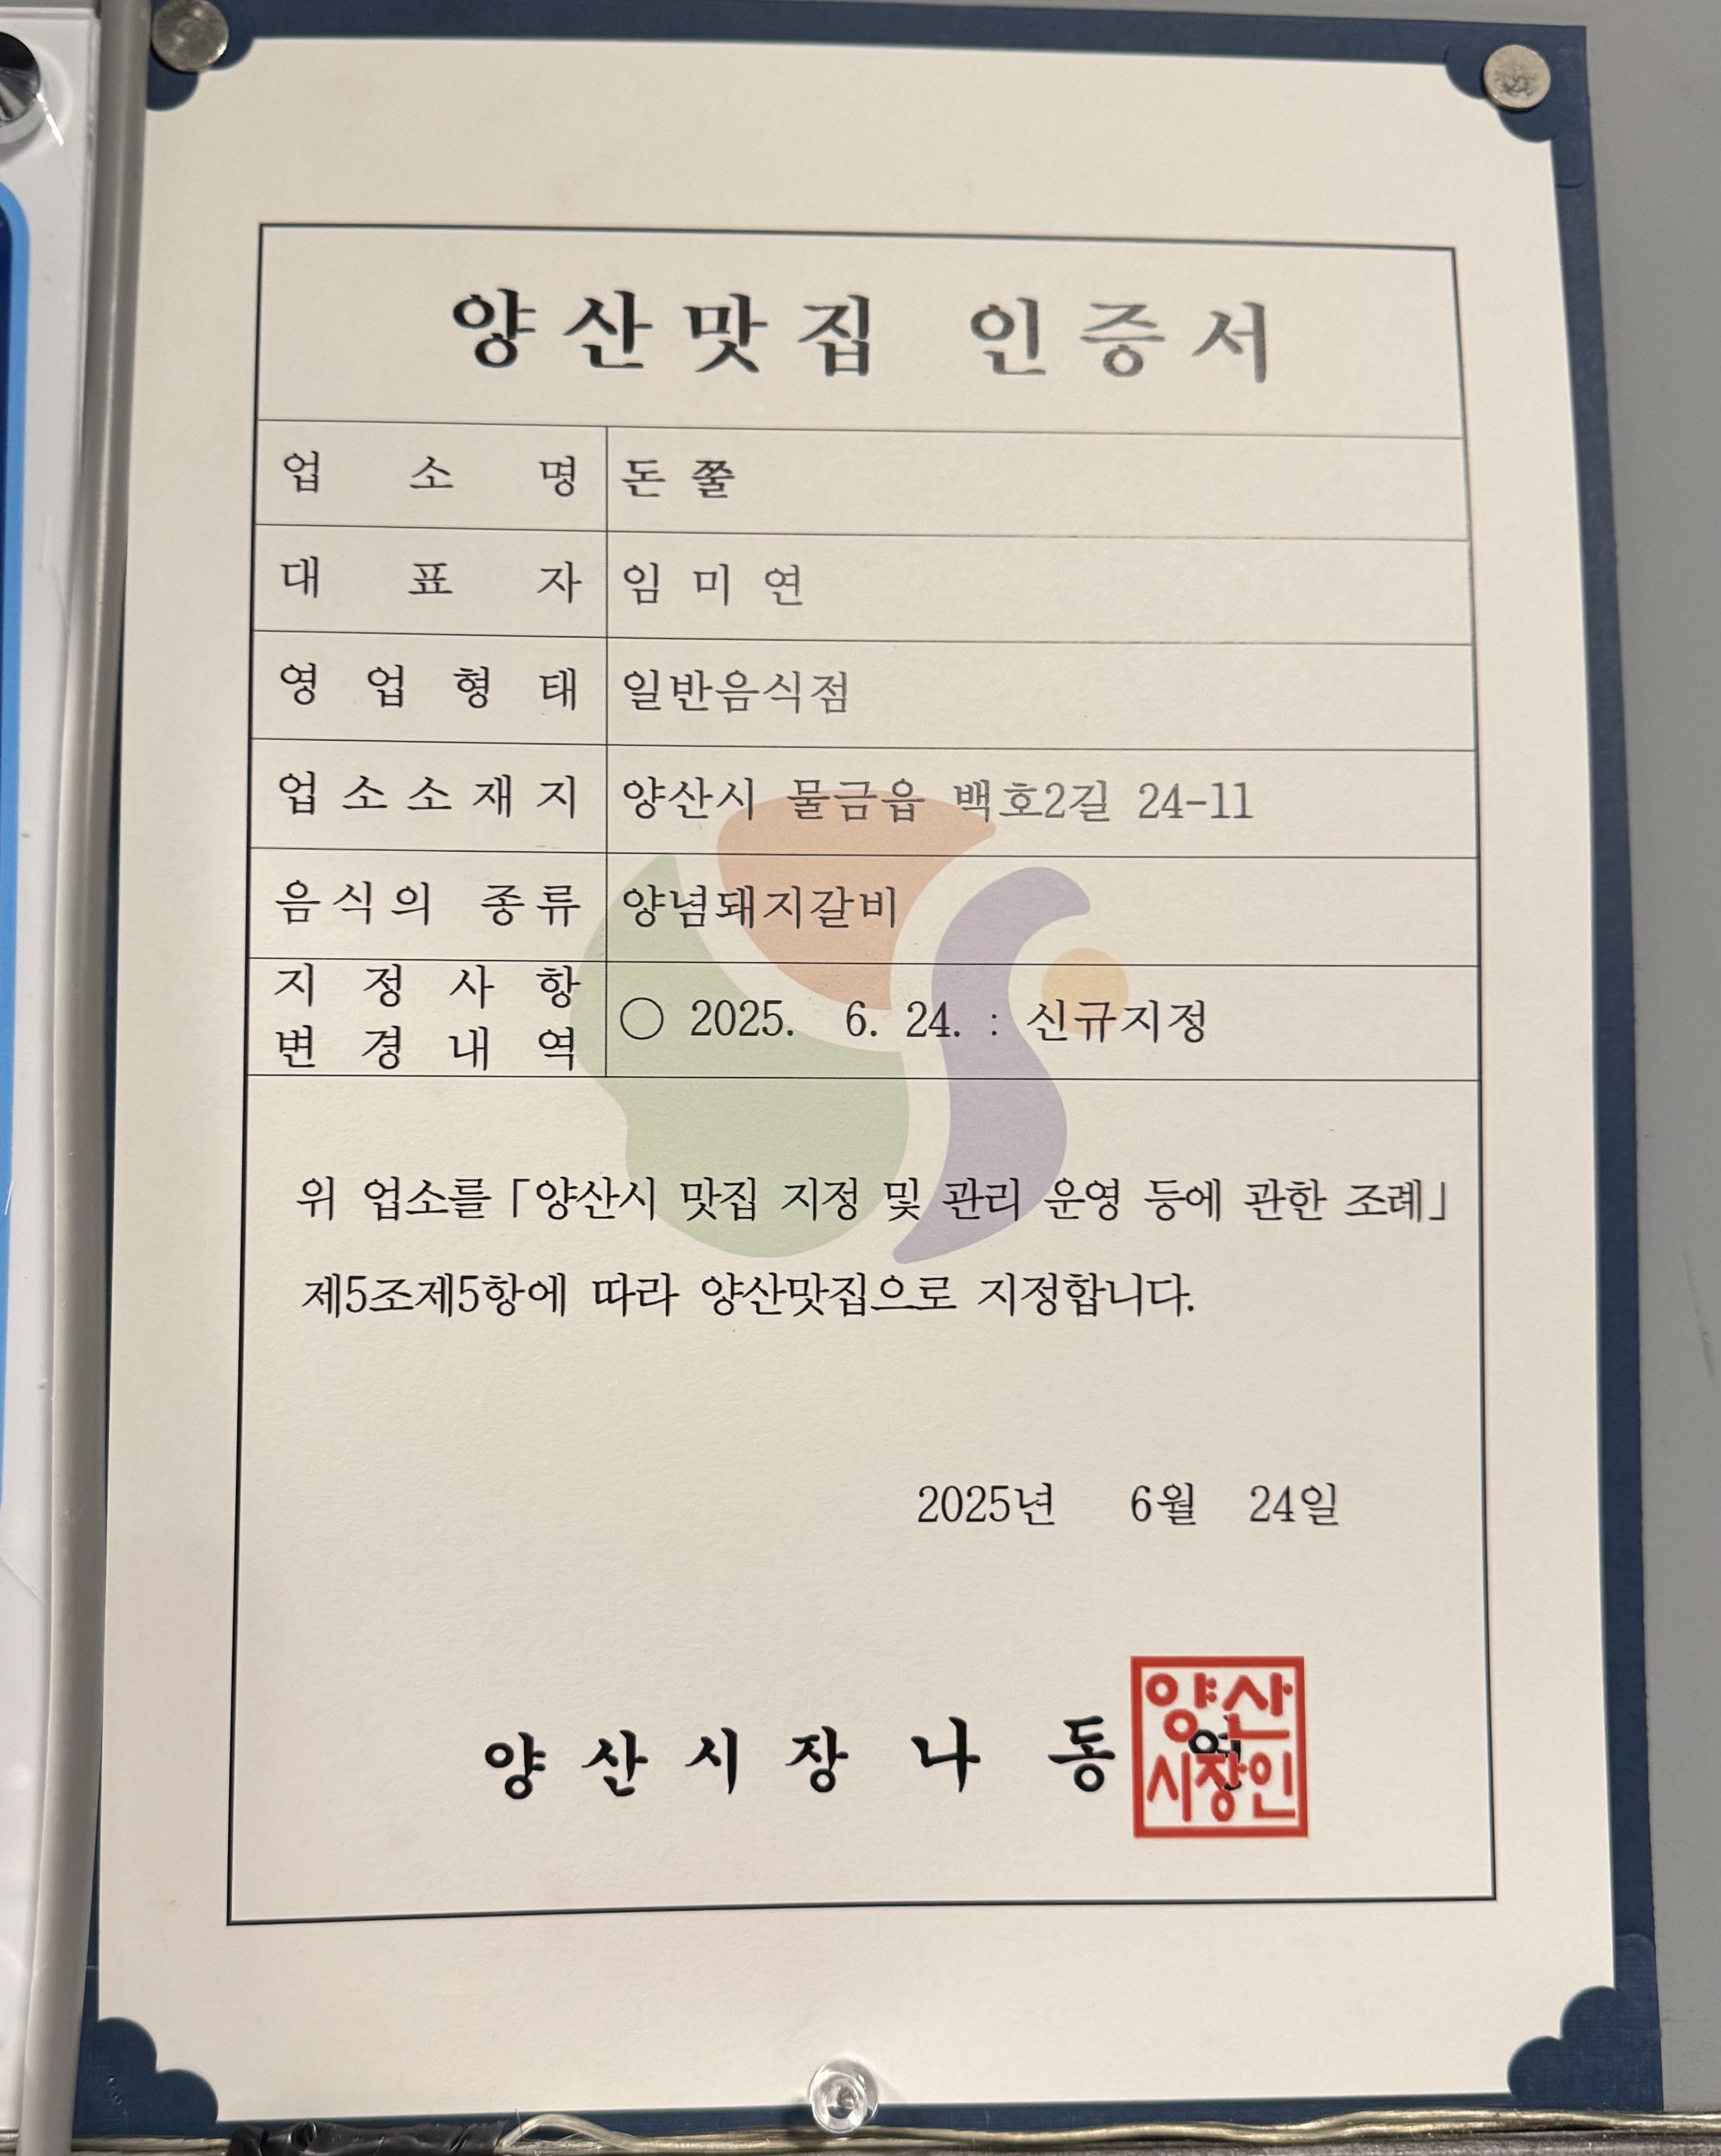 양산맛집 인증서
업소명 돈쭐
대표자 임미연
영업형태 일반음식점
업소소재지 양산시 물금읍 백호2길 24-11
음식의 종류 양념돼지갈비
지정사항
변경내역 ○ 2025. 6. 24. : 신규지정
위 업소를 「양산시 맛집 지정 및 관리 운영 등에 관한 조례」
제5조제5항에 따라 양산맛집으로 지정합니다.
2025년 6월 24일
양산시장 나 동 연
양산
시장인